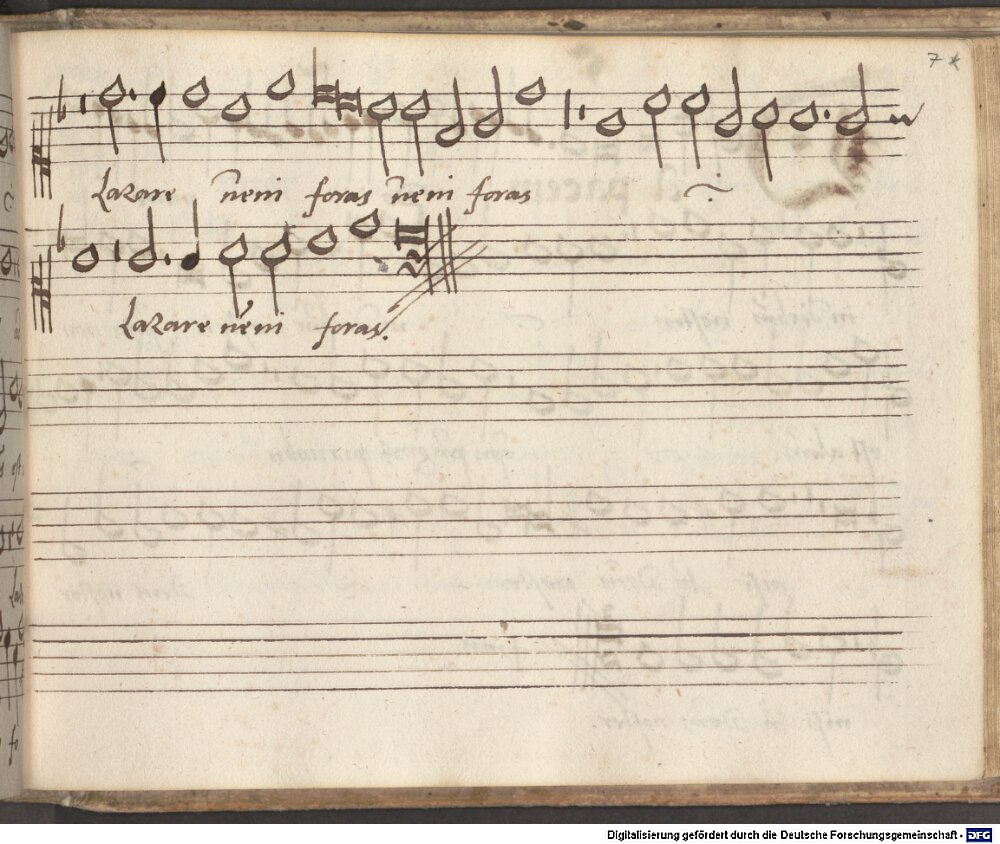 7
Lazare veni foras veni foras
Lazare veni foras.
Digitalisierung gefördert durch die Deutsche Forschungsgemeinschaft - DFG